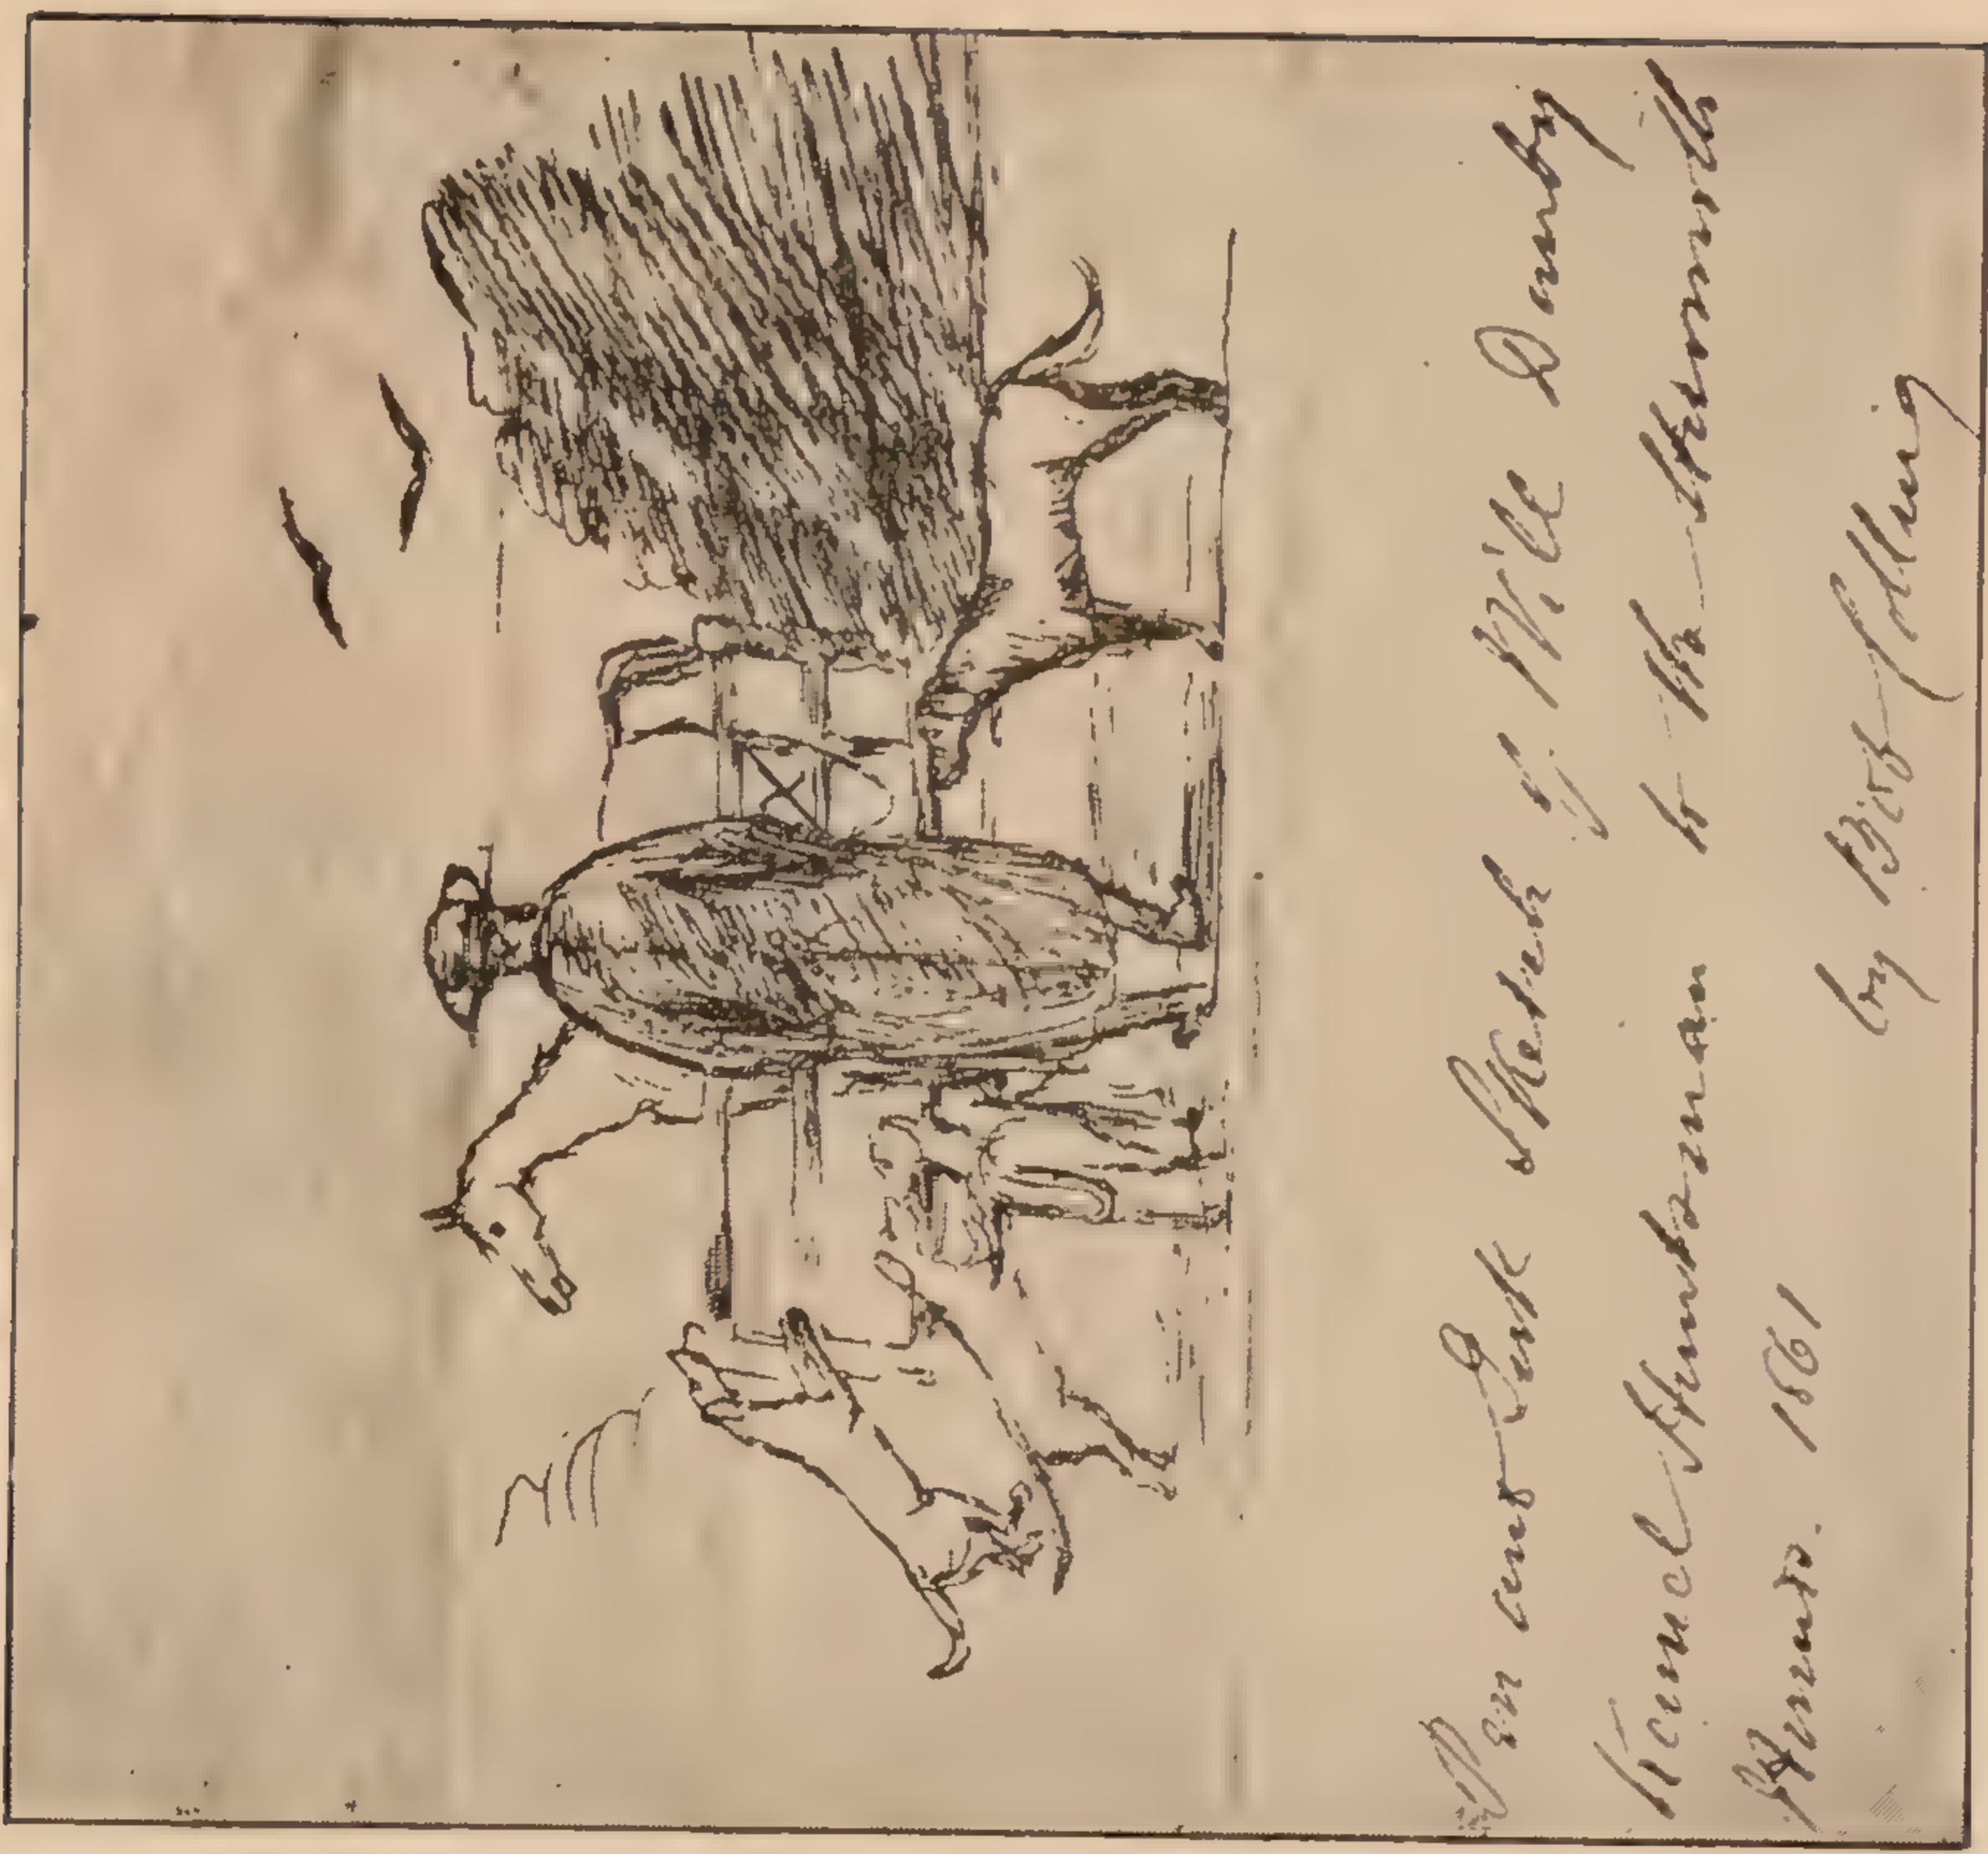 Pen and Ink Sketch of Will Danby
Kennel Huntsman to the Hurworth
Hounds. 1861
by Bob Colling